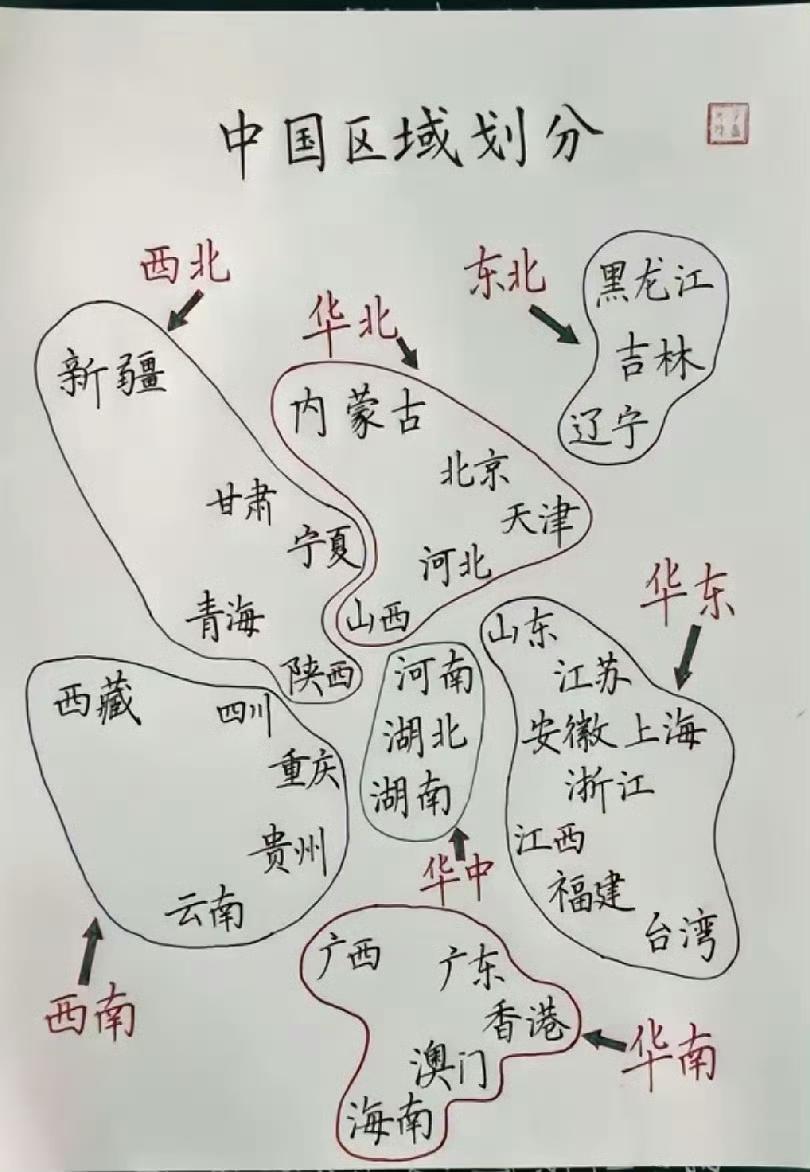 中国区域划分
西北
新疆
甘肃
宁夏
青海
陕西
华北
内蒙古
北京
天津
河北
山西
东北
黑龙江
吉林
辽宁
华东
山东
江苏
安徽 上海
浙江
江西
福建
台湾
华中
河南
湖北
湖南
西南
西藏
四川
重庆
贵州
云南
华南
广西
广东
香港
澳门
海南